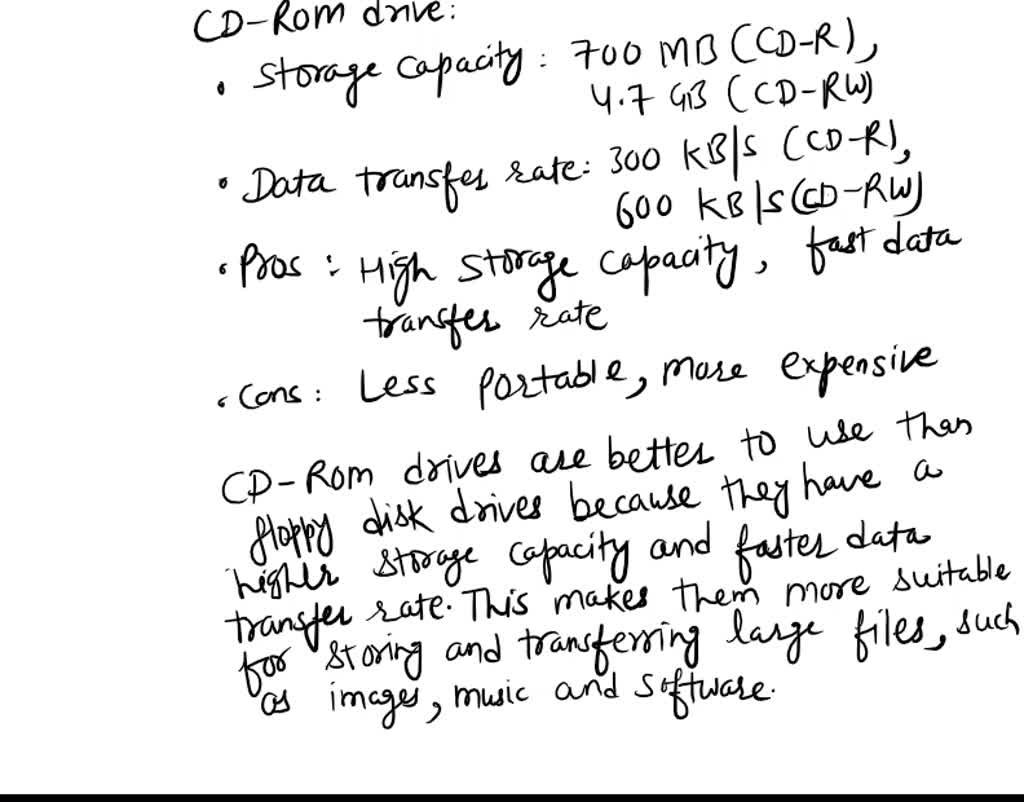 CD-Rom drive:
• Storage capacity: 700 MB (CD-R),
4.7 GB (CD-RW)
• Data transfer rate: 300 KB/s (CD-R),
600 KB/s (CD-RW)
• Pros: High storage capacity, fast data
transfer rate
• Cons: Less portable, more expensive
CD-Rom drives are better to use than
floppy disk drives because they have a
higher storage capacity and faster data
transfer rate. This makes them more suitable
for storing and transferring large files, such
as images, music and software.